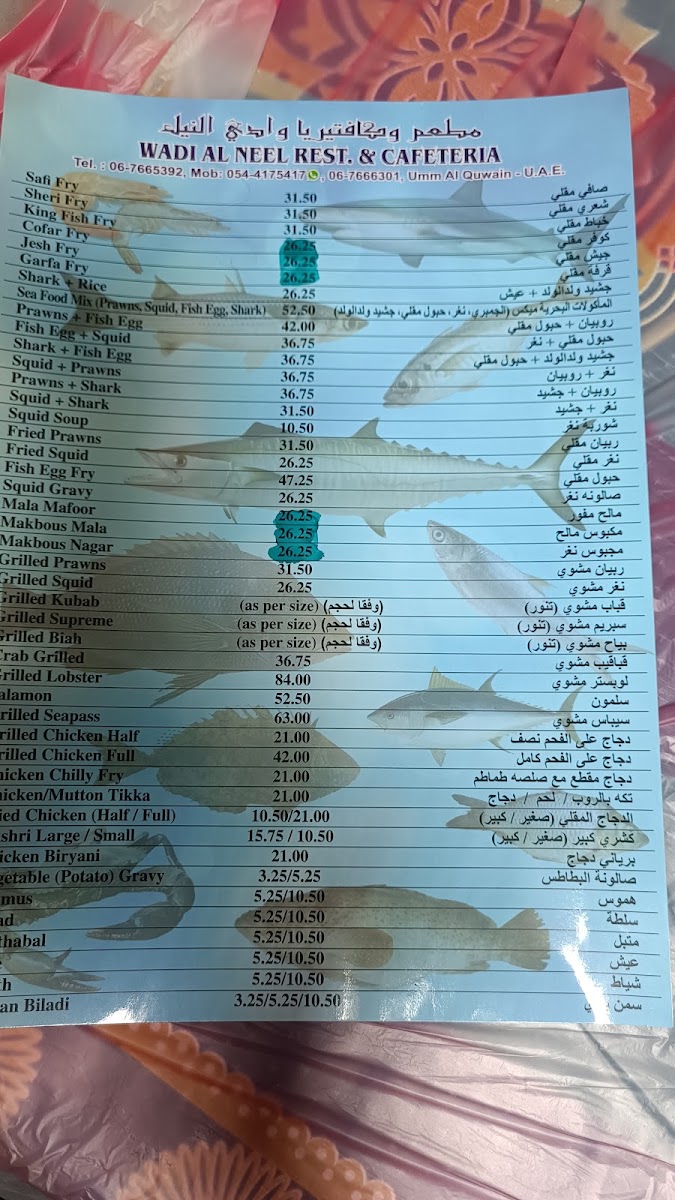 مطعم وكافتيريا وادي النيل
WADI AL NEEL REST. & CAFETERIA
Tel. : 06-7665392, Mob: 054-4175417, 06-7666301, Umm Al Quwain - U.A.E.
Safi Fry 31.50 صافي مقلي
Sheri Fry 31.50 شعري مقلي
King Fish Fry 31.50 خباط مقلي
Cofar Fry 26.25 كوفر مقلي
Jesh Fry 26.25 جيش مقلي
Garfa Fry 26.25 قرفة مقلي
Shark + Rice 26.25 جشيد ولدالولد + عيش
Sea Food Mix (Prawns, Squid, Fish Egg, Shark) 52.50 المأكولات البحرية ميكس (الجمبري، نغر، حبول مقلي، جشيد ولدالولد)
Prawns + Fish Egg 42.00 روبيان + حبول مقلي
Fish Egg + Squid 36.75 حبول مقلي + نغر
Shark + Fish Egg 36.75 جشيد ولدالولد + حبول مقلي
Squid + Prawns 36.75 نغر + روبيان
Prawns + Shark 36.75 روبيان + جشيد
Squid + Shark 31.50 نغر + جشيد
Squid Soup 10.50 شوربة نغر
Fried Prawns 31.50 ربيان مقلي
Fried Squid 26.25 نغر مقلي
Fish Egg Fry 47.25 حبول مقلي
Squid Gravy 26.25 صالونه نغر
Mala Mafoor 26.25 مالح مفور
Makbous Mala 26.25 مكبوس مالح
Makbous Nagar 26.25 مجبوس نغر
Grilled Prawns 31.50 ربيان مشوي
Grilled Squid 26.25 نغر مشوي
Grilled Kubab (as per size) (وفقا لحجم) قباب مشوي (تنور)
Grilled Supreme (as per size) (وفقا لحجم) سبريم مشوي (تنور)
Grilled Biah (as per size) (وفقا لحجم) بياح مشوي (تنور)
Crab Grilled 36.75 قباقيب مشوي
rilled Lobster 84.00 لوبستر مشوي
alamon 52.50 سلمون
rilled Seapass 63.00 سيباس مشوي
rilled Chicken Half 21.00 دجاج على الفحم نصف
rilled Chicken Full 42.00 دجاج على الفحم كامل
hicken Chilly Fry 21.00 دجاج مقطع مع صلصه طماطم
hicken/Mutton Tikka 21.00 تكه بالروب / لحم / دجاج
ied Chicken (Half / Full) 10.50/21.00 الدجاج المقلي (صغير / كبير)
shri Large / Small 15.75 / 10.50 كشري كبير (صغير / كبير)
icken Biryani 21.00 برياني دجاج
getable (Potato) Gravy 3.25/5.25 صالونة البطاطس
mus 5.25/10.50 هموس
ad 5.25/10.50 سلطة
thabal 5.25/10.50 متبل
5.25/10.50 عيش
th 5.25/10.50 شياط
an Biladi 3.25/5.25/10.50 سمن